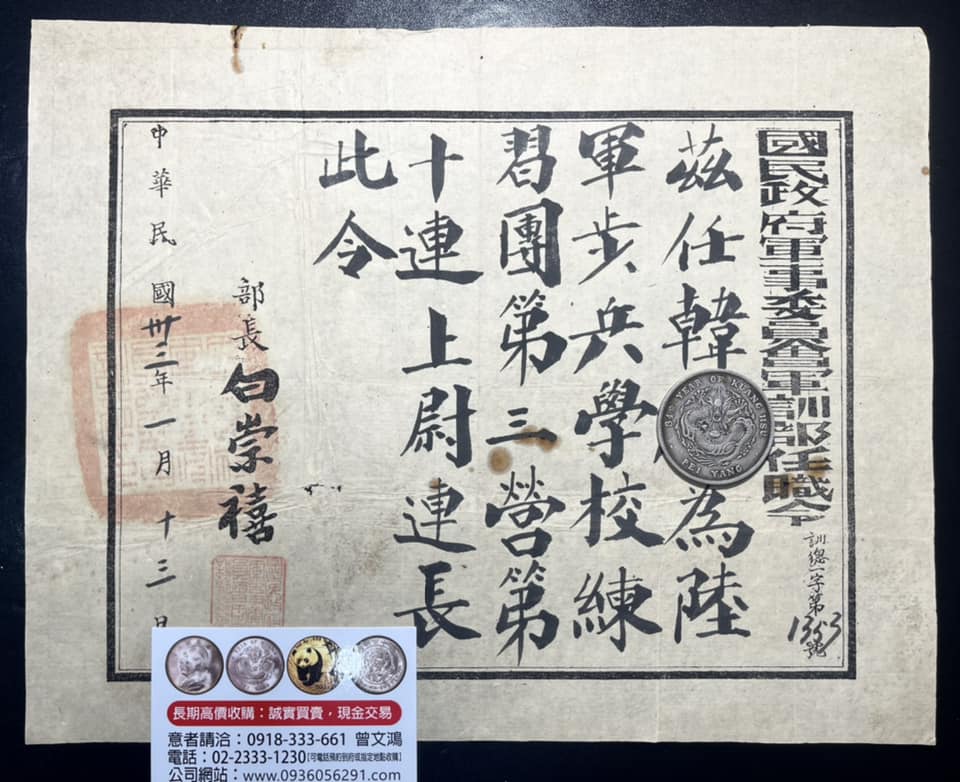 國民政府軍事委員會軍訓部任職令
訓總一字第1353號
茲任韓為陸
軍步兵學校練
習團第三營第
十連上尉連長
此令
部長白崇禧
中華民國卅三年一月十三日
34th YEAR OF KUANG HSU
PEI YANG
長期高價收購：誠實買賣，現金交易
意者請洽：0918-333-661 曾文鴻
電話：02-2333-1230【可電話預約到府或指定地點收購】
公司網站：www.0936056291.com